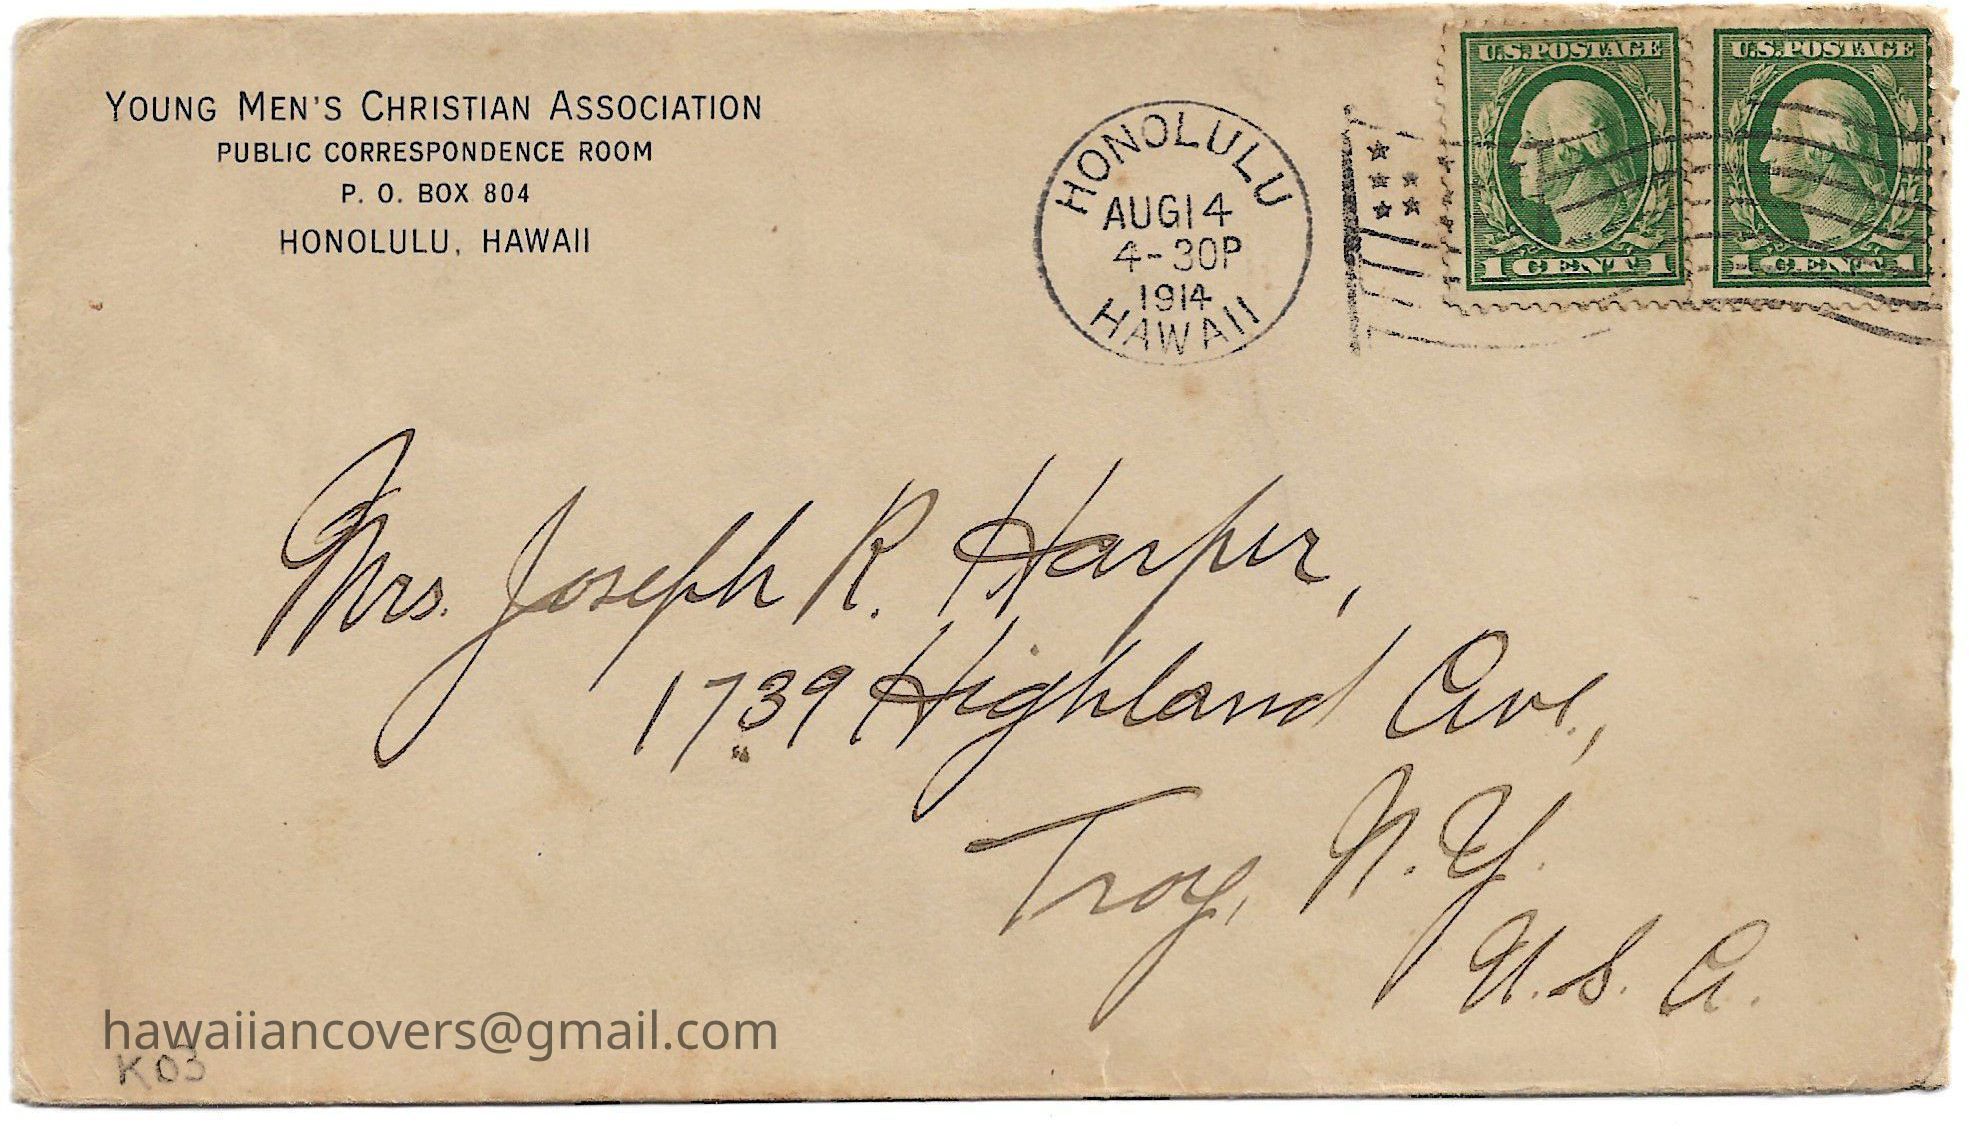 YOUNG MEN'S CHRISTIAN ASSOCIATION
PUBLIC CORRESPONDENCE ROOM
P. O. BOX 804
HONOLULU, HAWAII
HONOLULU
AUG 14
4-30P
1914
HAWAII
U.S. POSTAGE
1 CENT 1
U.S. POSTAGE
1 CENT 1
Mrs. Joseph R. Harper,
1739 Highland Ave.,
Troy, N.Y.
U.S.A.
hawaiiancovers@gmail.com
K03